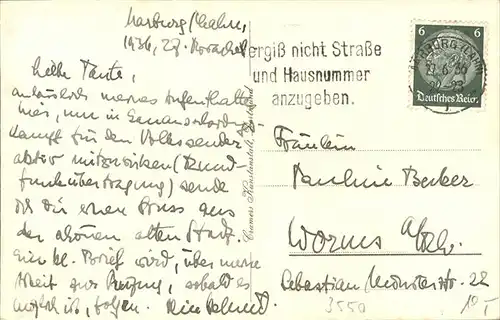 Marburg/Lahn,
1936, 27.
Liebe Tante,
anlässlich meines Aufenthaltes
hier, um im
kampf für den Volkssender
aktiv mitzuwirken (Rund-
funkübertragung) sende
ich Dir einen Gruss aus
der schönen alten Stadt.
Ein kl. Brief wird, über meine
Arbeit zur Prüfung, sobald es
möglich ist, folgen. Dein
ergiß nicht Straße
und Hausnummer
anzugeben.
6 6
Deutsches Reich
MARBURG (LAHN)
Cramers Kunstanstalt, Dortmund
Fräulein
Pauline Becker
Worms a/Rh.
Sebastian Münsterstr. 22
3550